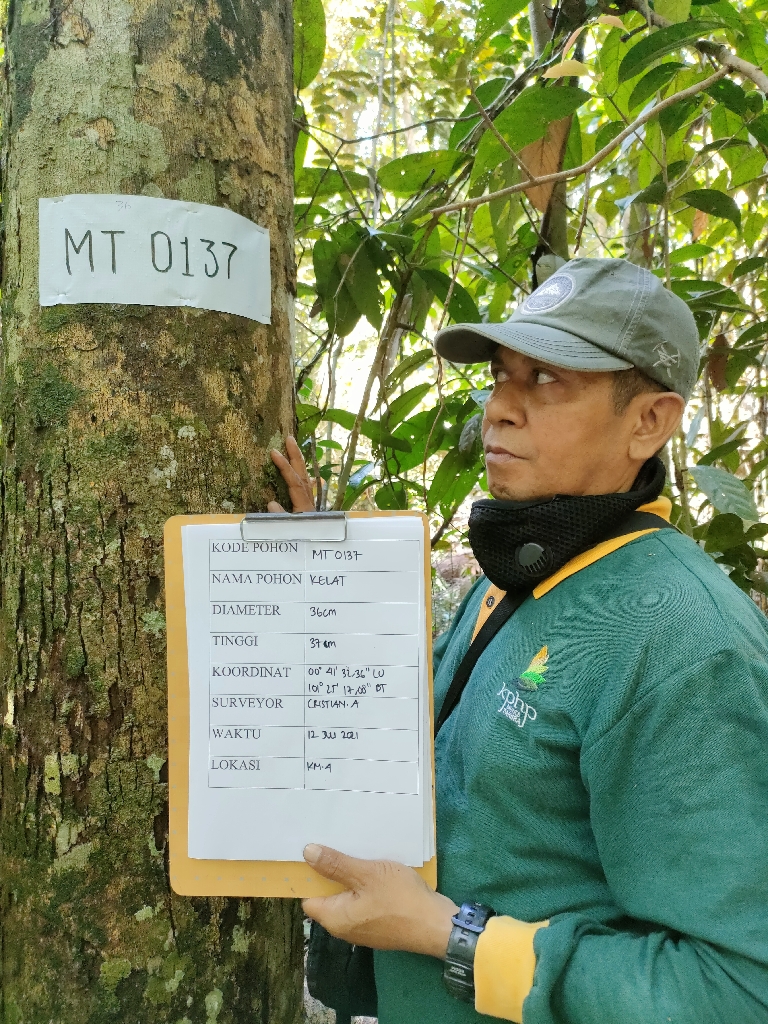 36
MT 0137
KODE POHON MT 0137
NAMA POHON KELAT
DIAMETER 36cm
TINGGI 37 m
KOORDINAT 00° 41' 32.36" LU
101° 25' 17,08" BT
SURVEYOR CRISTIAN.A
WAKTU 12 JULI 2021
LOKASI KM.4
kphp